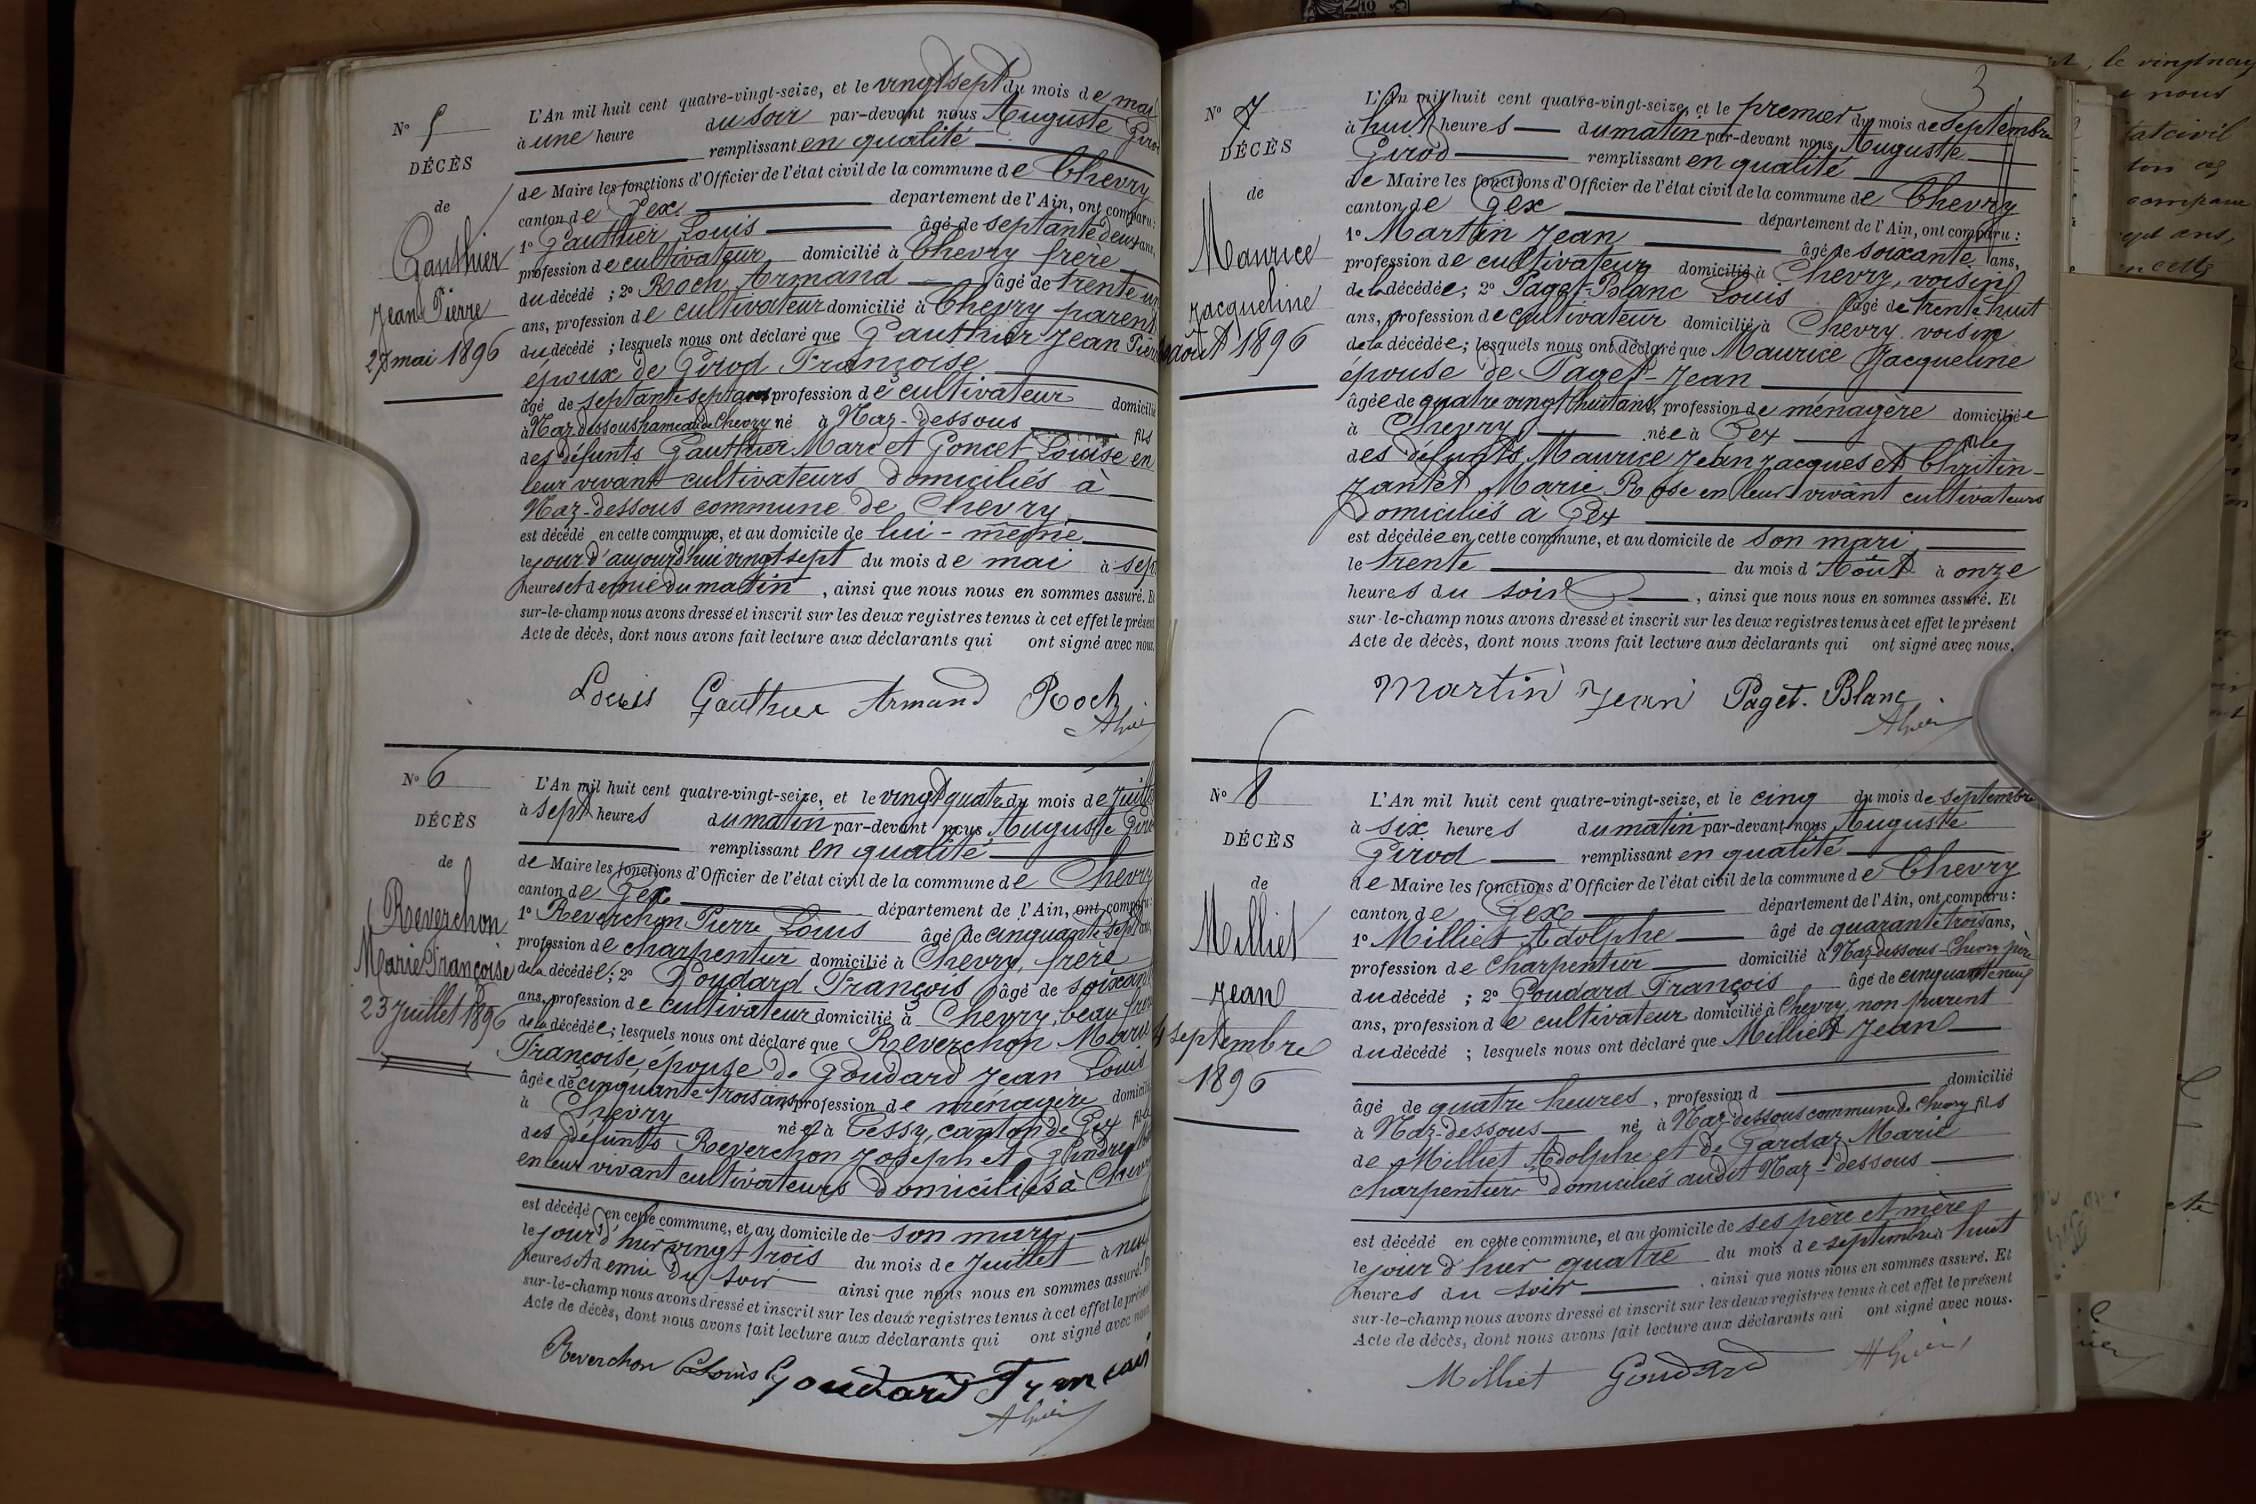 N° 5
DÉCÈS
de
Gauthier
Jean Pierre
27 mai 1896
L'An mil huit cent quatre-vingt-seize, et le vingt sept du mois de mai
à une heure du soir par-devant nous Auguste Girod
remplissant en qualité
de Maire les fonctions d'Officier de l'état civil de la commune de Chevry
canton de Gex département de l'Ain, ont comparu :
1° Gauthier Louis âgé de septante deux ans,
profession de cultivateur domicilié à Chevry frère
du décédé ; 2° Roch Armand âgé de trente un
ans, profession de cultivateur domicilié à Chevry parent
du décédé ; lesquels nous ont déclaré que Gauthier Jean Pierre
époux de Girod Françoise
âgé de septante sept ans profession de cultivateur domicilié
à Naz-dessous hameau de Chevry né à Naz-dessous fils
des défunts Gauthier Marc et Poncet Louise en
leur vivant cultivateurs domiciliés à
Naz-dessous commune de Chevry
est décédé en cette commune, et au domicile de lui-même
le jour d'aujourd'hui vingt sept du mois de mai à sept
heures et demie du matin, ainsi que nous nous en sommes assuré. Et
sur-le-champ nous avons dressé et inscrit sur les deux registres tenus à cet effet le présent
Acte de décès, dont nous avons fait lecture aux déclarants qui ont signé avec nous.
Louis Gauthier Armand Roch
N° 6
DÉCÈS
de
Reverchon
Marie Françoise
23 Juillet 1896
L'An mil huit cent quatre-vingt-seize, et le vingt quatre du mois de Juillet
à sept heures du matin par-devant nous Auguste Girod
remplissant en qualité
de Maire les fonctions d'Officier de l'état civil de la commune de Chevry
canton de Gex département de l'Ain, ont comparu :
1° Reverchon Pierre Louis âgé de cinquante sept ans,
profession de charpentier domicilié à Chevry, frère
de la décédée ; 2° Goudard François âgé de soixante
ans, profession de cultivateur domicilié à Chevry, beau frère
de la décédée ; lesquels nous ont déclaré que Reverchon Marie
Françoise, épouse de Goudard Jean Louis
âgée de cinquante trois ans profession de ménagère domiciliée
à Chevry née à Cessy, canton de Gex fille
des défunts Reverchon Joseph et
en leur vivant cultivateurs domiciliés à Chevry
est décédé en cette commune, et au domicile de son mary
le jour d'hier vingt trois du mois de Juillet à neuf
heures et demie du soir ainsi que nous nous en sommes assuré. Et
sur-le-champ nous avons dressé et inscrit sur les deux registres tenus à cet effet le présent
Acte de décès, dont nous avons fait lecture aux déclarants qui ont signé avec nous.
Reverchon Louis Goudard Francois
3
N° 7
DÉCÈS
de
Maurice
Jacqueline
août 1896
L'An mil huit cent quatre-vingt-seize, et le premier du mois de septembre
à huit heures du matin par-devant nous Auguste
Girod remplissant en qualité
de Maire les fonctions d'Officier de l'état civil de la commune de Chevry
canton de Gex département de l'Ain, ont comparu :
1° Martin Jean âgé de soixante ans,
profession de cultivateur domicilié à Chevry, voisin
de la décédée ; 2° Paget-Blanc Louis âgé de trente huit
ans, profession de cultivateur domicilié à Chevry voisin
de la décédée ; lesquels nous ont déclaré que Maurice Jacqueline
épouse de Paget-Jean
âgée de quatre vingt huit ans, profession de ménagère domiciliée
à Chevry née à Gex fille
des défunts Maurice Jean Jacques et Christin-
Jantet Marie Rose en leur vivant cultivateurs
domiciliés à Gex
est décédée en cette commune, et au domicile de son mari
le trente du mois d'Août à onze
heures du soir, ainsi que nous nous en sommes assuré. Et
sur-le-champ nous avons dressé et inscrit sur les deux registres tenus à cet effet le présent
Acte de décès, dont nous avons fait lecture aux déclarants qui ont signé avec nous.
Martin Jean Paget. Blanc
N° 8
DÉCÈS
de
Milliet
Jean
4 septembre
1896
L'An mil huit cent quatre-vingt-seize, et le cinq du mois de septembre
à six heures du matin par-devant nous Auguste
Girod remplissant en qualité
de Maire les fonctions d'Officier de l'état civil de la commune de Chevry
canton de Gex département de l'Ain, ont comparu :
1° Milliet Adolphe âgé de quarante trois ans,
profession de charpentier domicilié à Naz-dessous-Chevry père
du décédé ; 2° Goudard François âgé de cinquante neuf
ans, profession de cultivateur domicilié à Chevry non parent
du décédé ; lesquels nous ont déclaré que Milliet Jean
âgé de quatre heures, profession d domicilié
à Naz-dessous né à Naz-dessous commune de Chevry fils
de Milliet Adolphe et de Gardaz Marie
charpentier domiciliés audit Naz-dessous
est décédé en cette commune, et au domicile de ses père et mère
le jour d'hier quatre du mois de septembre à huit
heures du soir, ainsi que nous nous en sommes assuré. Et
sur-le-champ nous avons dressé et inscrit sur les deux registres tenus à cet effet le présent
Acte de décès, dont nous avons fait lecture aux déclarants qui ont signé avec nous.
Milliet Goudard